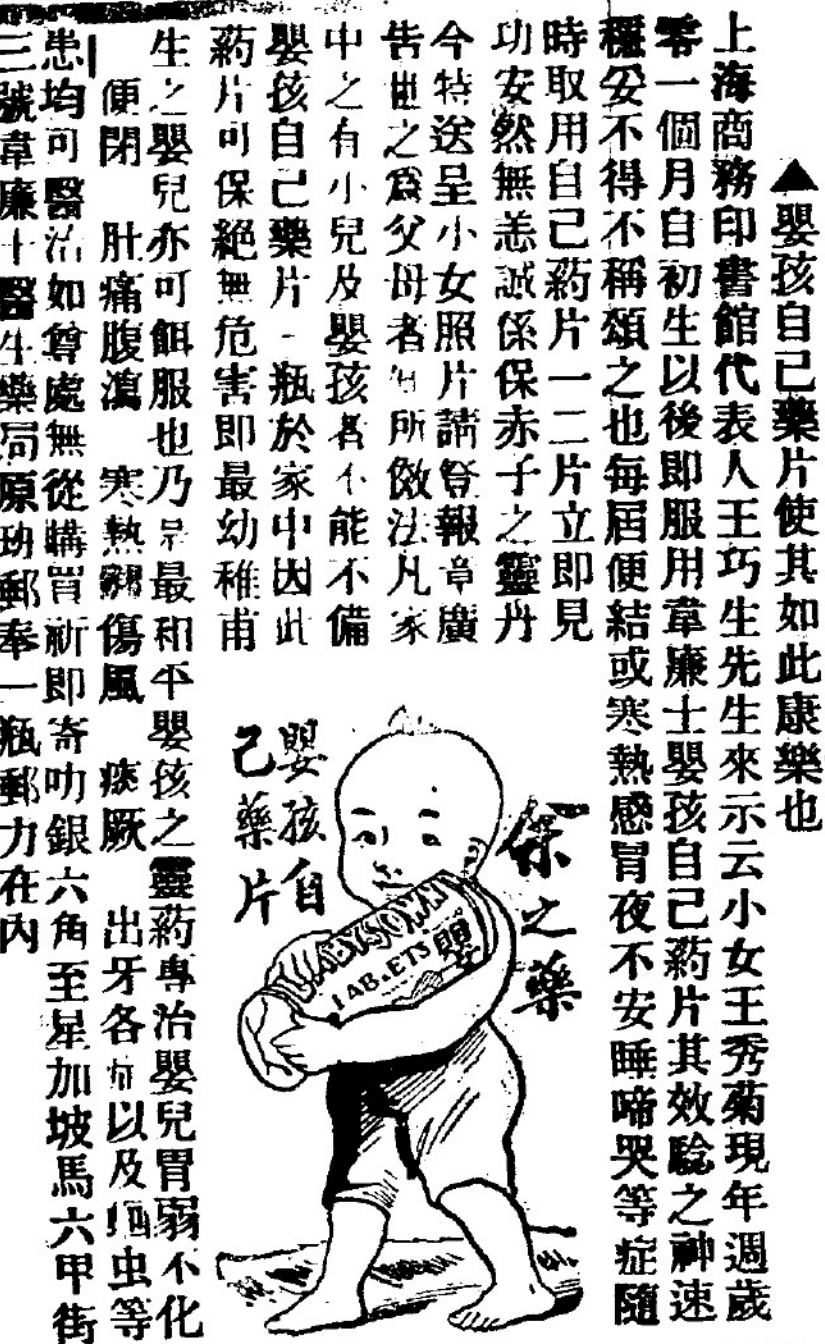 ▲嬰孩自己藥片使其如此康樂也
上海商務印書館代表人王巧生先生來示云小女王秀菊現年週歲
零一個月自初生以後即服用韋廉士嬰孩自己葯片其效驗之神速
穩妥不得不稱頌之也每屆便結或寒熱感冒夜不安睡啼哭等症隨
時取用自己葯片一二片立即見
功安然無恙誠係保赤子之靈丹
今特送呈小女照片請登報章廣
告世之爲父母者有所倣法凡家
中之有小兒及嬰孩者不能不備
嬰孩自己藥片一瓶於家中因此
葯片可保絕無危害即最幼稚甫
生之嬰兒亦可餌服也乃是最和平嬰孩之靈葯專治嬰兒胃弱不化
便閉 肝痛腹瀉 寒熱 傷風 痰厥 出牙各症以及蟲等
患均可醫治如尊處無從購買祈即寄叻銀六角至星加坡馬六甲街
三號韋廉士醫生藥局原班郵奉一瓶郵力在內
之藥
嬰孩自
己藥片
BABY'S OWN
TABLETS
嬰